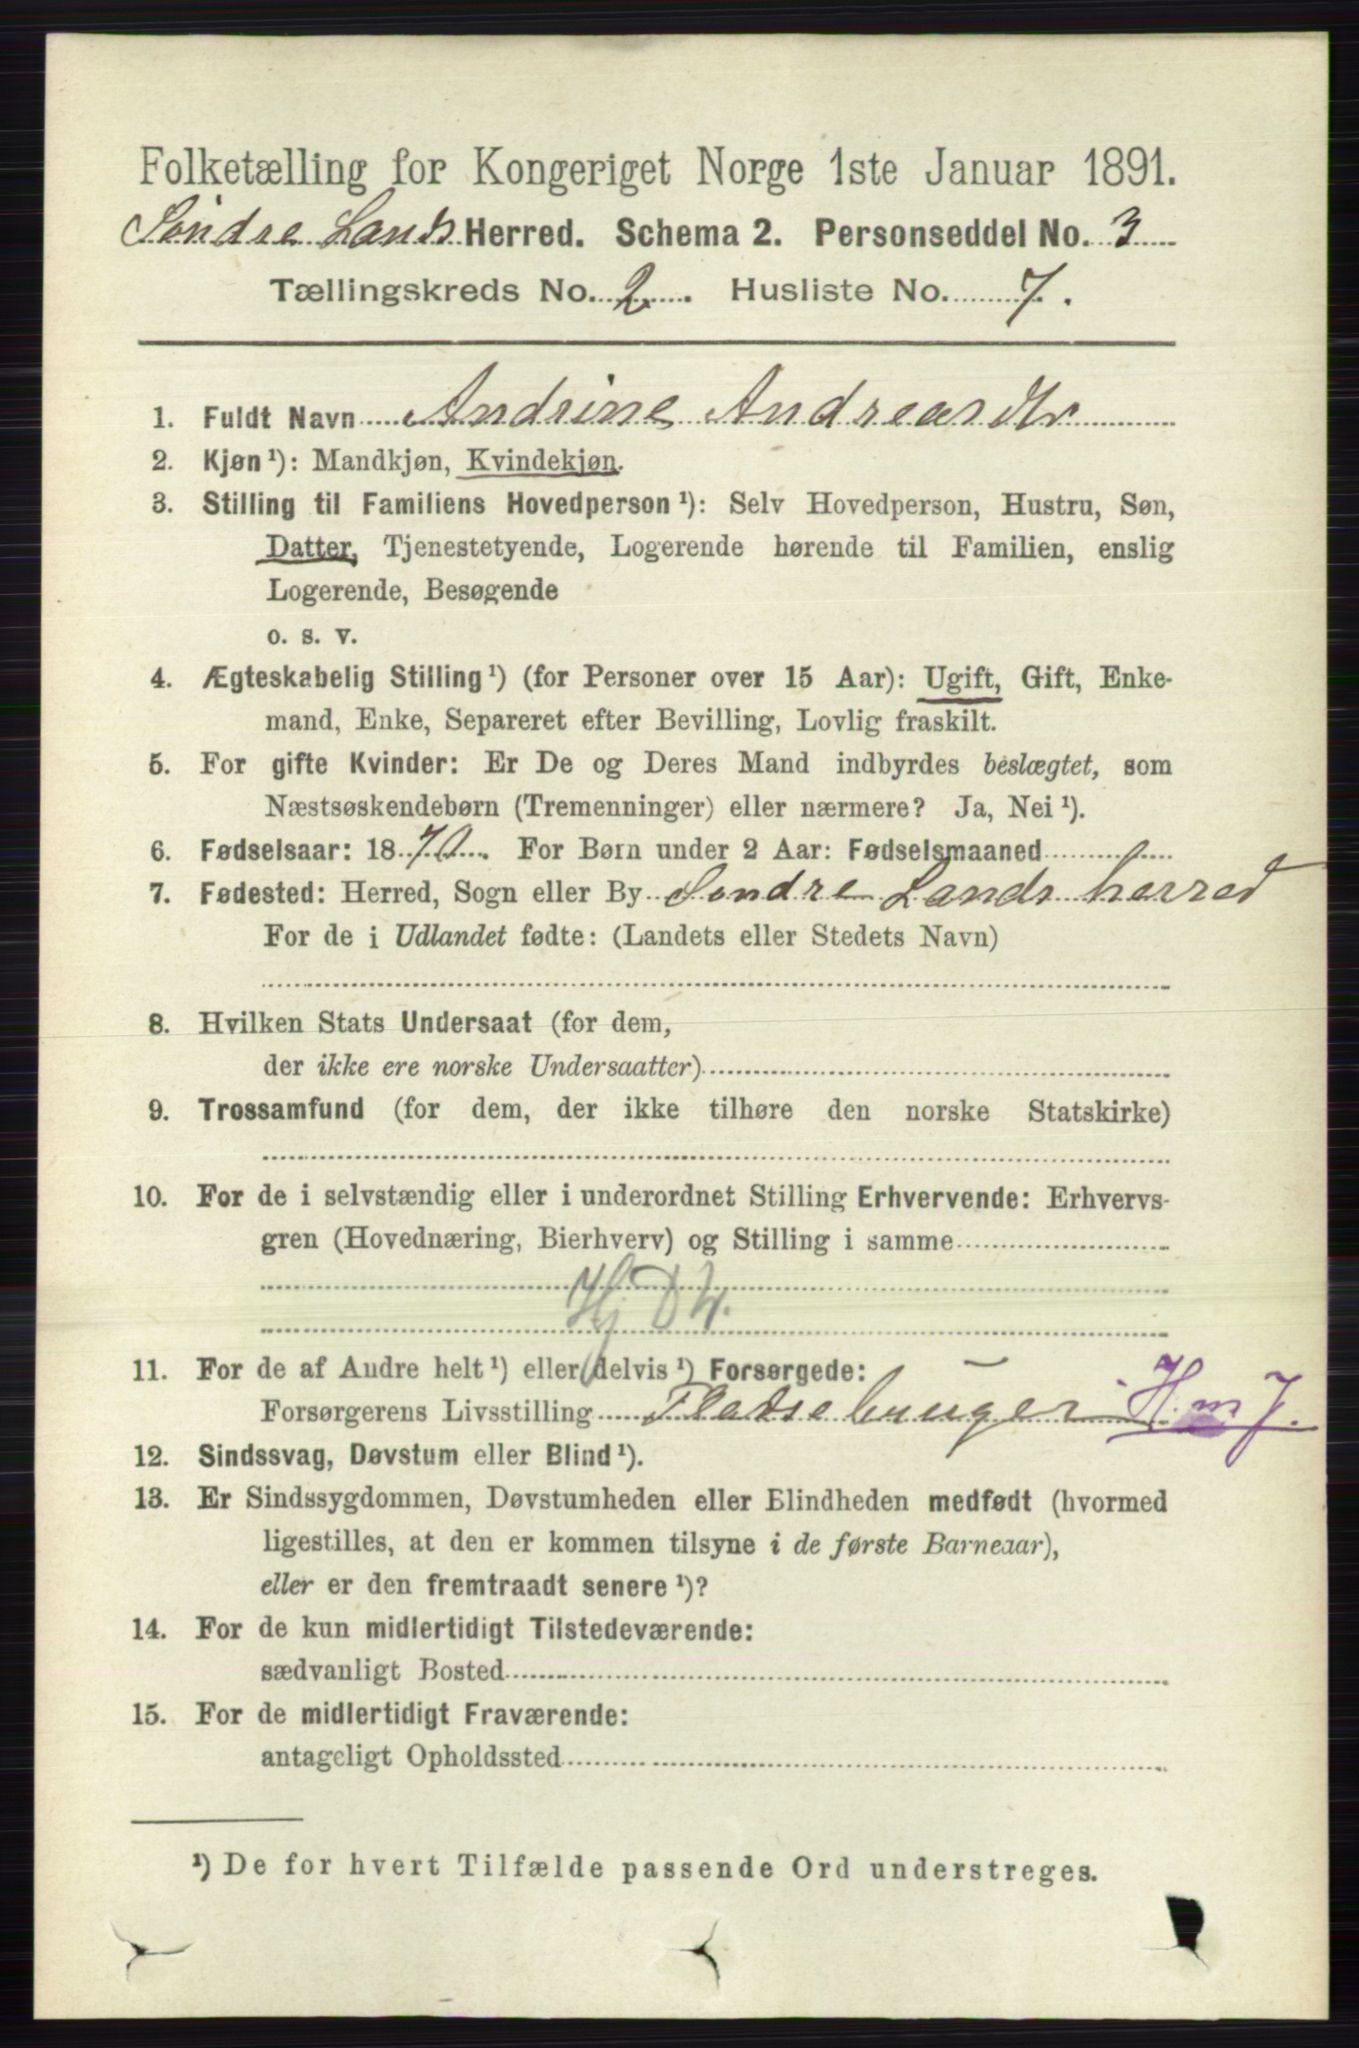 Folketælling for Kongeriget Norge 1ste Januar 1891.
Søndre Lands Herred. Schema 2. Personseddel No. 3
Tællingskreds No. 2. Husliste No. 7.
1. Fuldt Navn Andrine Andreasdtr
2. Kjøn ¹): Mandkjøn, Kvindekjøn.
3. Stilling til Familiens Hovedperson ¹): Selv Hovedperson, Hustru, Søn,
Datter, Tjenestetyende, Logerende hørende til Familien, enslig
Logerende, Besøgende
o. s. v.
4. Ægteskabelig Stilling ¹) (for Personer over 15 Aar): Ugift, Gift, Enke-
mand, Enke, Separeret efter Bevilling, Lovlig fraskilt.
5. For gifte Kvinder: Er De og Deres Mand indbyrdes beslægtet, som
Næstsøskendebørn (Tremenninger) eller nærmere? Ja, Nei ¹).
6. Fødselsaar: 1870. For Børn under 2 Aar: Fødselsmaaned
7. Fødested: Herred, Sogn eller By Søndre Lands herred
For de i Udlandet fødte: (Landets eller Stedets Navn)
8. Hvilken Stats Undersaat (for dem,
der ikke ere norske Undersaatter)
9. Trossamfund (for dem, der ikke tilhøre den norske Statskirke)
10. For de i selvstændig eller i underordnet Stilling Erhvervende: Erhvervs-
gren (Hovednæring, Bierhverv) og Stilling i samme
11. For de af Andre helt ¹) eller delvis ¹) Forsørgede:
Forsørgerens Livsstilling H. m J.
12. Sindssvag, Døvstum eller Blind ¹).
13. Er Sindssygdommen, Døvstumheden eller Blindheden medfødt (hvormed
ligestilles, at den er kommen tilsyne i de første Barneaar),
eller er den fremtraadt senere ¹)?
14. For de kun midlertidigt Tilstedeværende:
sædvanligt Bosted
15. For de midlertidigt Fraværende:
antageligt Opholdssted
¹) De for hvert Tilfælde passende Ord understreges.